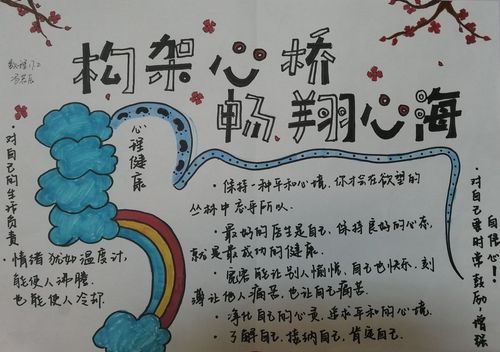 构架心桥
畅翔心海
心理健康
·对自己的生活负责
·情绪犹如温度计,
能使人沸腾
也能使人冷却.
·保持一种平和心境,你才会在欲望的
丛林中忘乎所以.
·最好的医生是自己,保持良好的心态,
就是最成功的健康.
·宽容能让别人愉悦,自己也快乐.刻
薄让他人痛苦,也让自己痛苦.
·净化自己的心灵,追求平和的心境.
·了解自己.接纳自己,肯定自己.
·对自己要时常鼓励,增强
自信心!